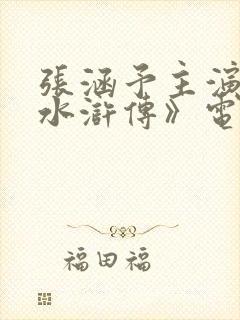 張涵予主演
水滸傳》電
福田福